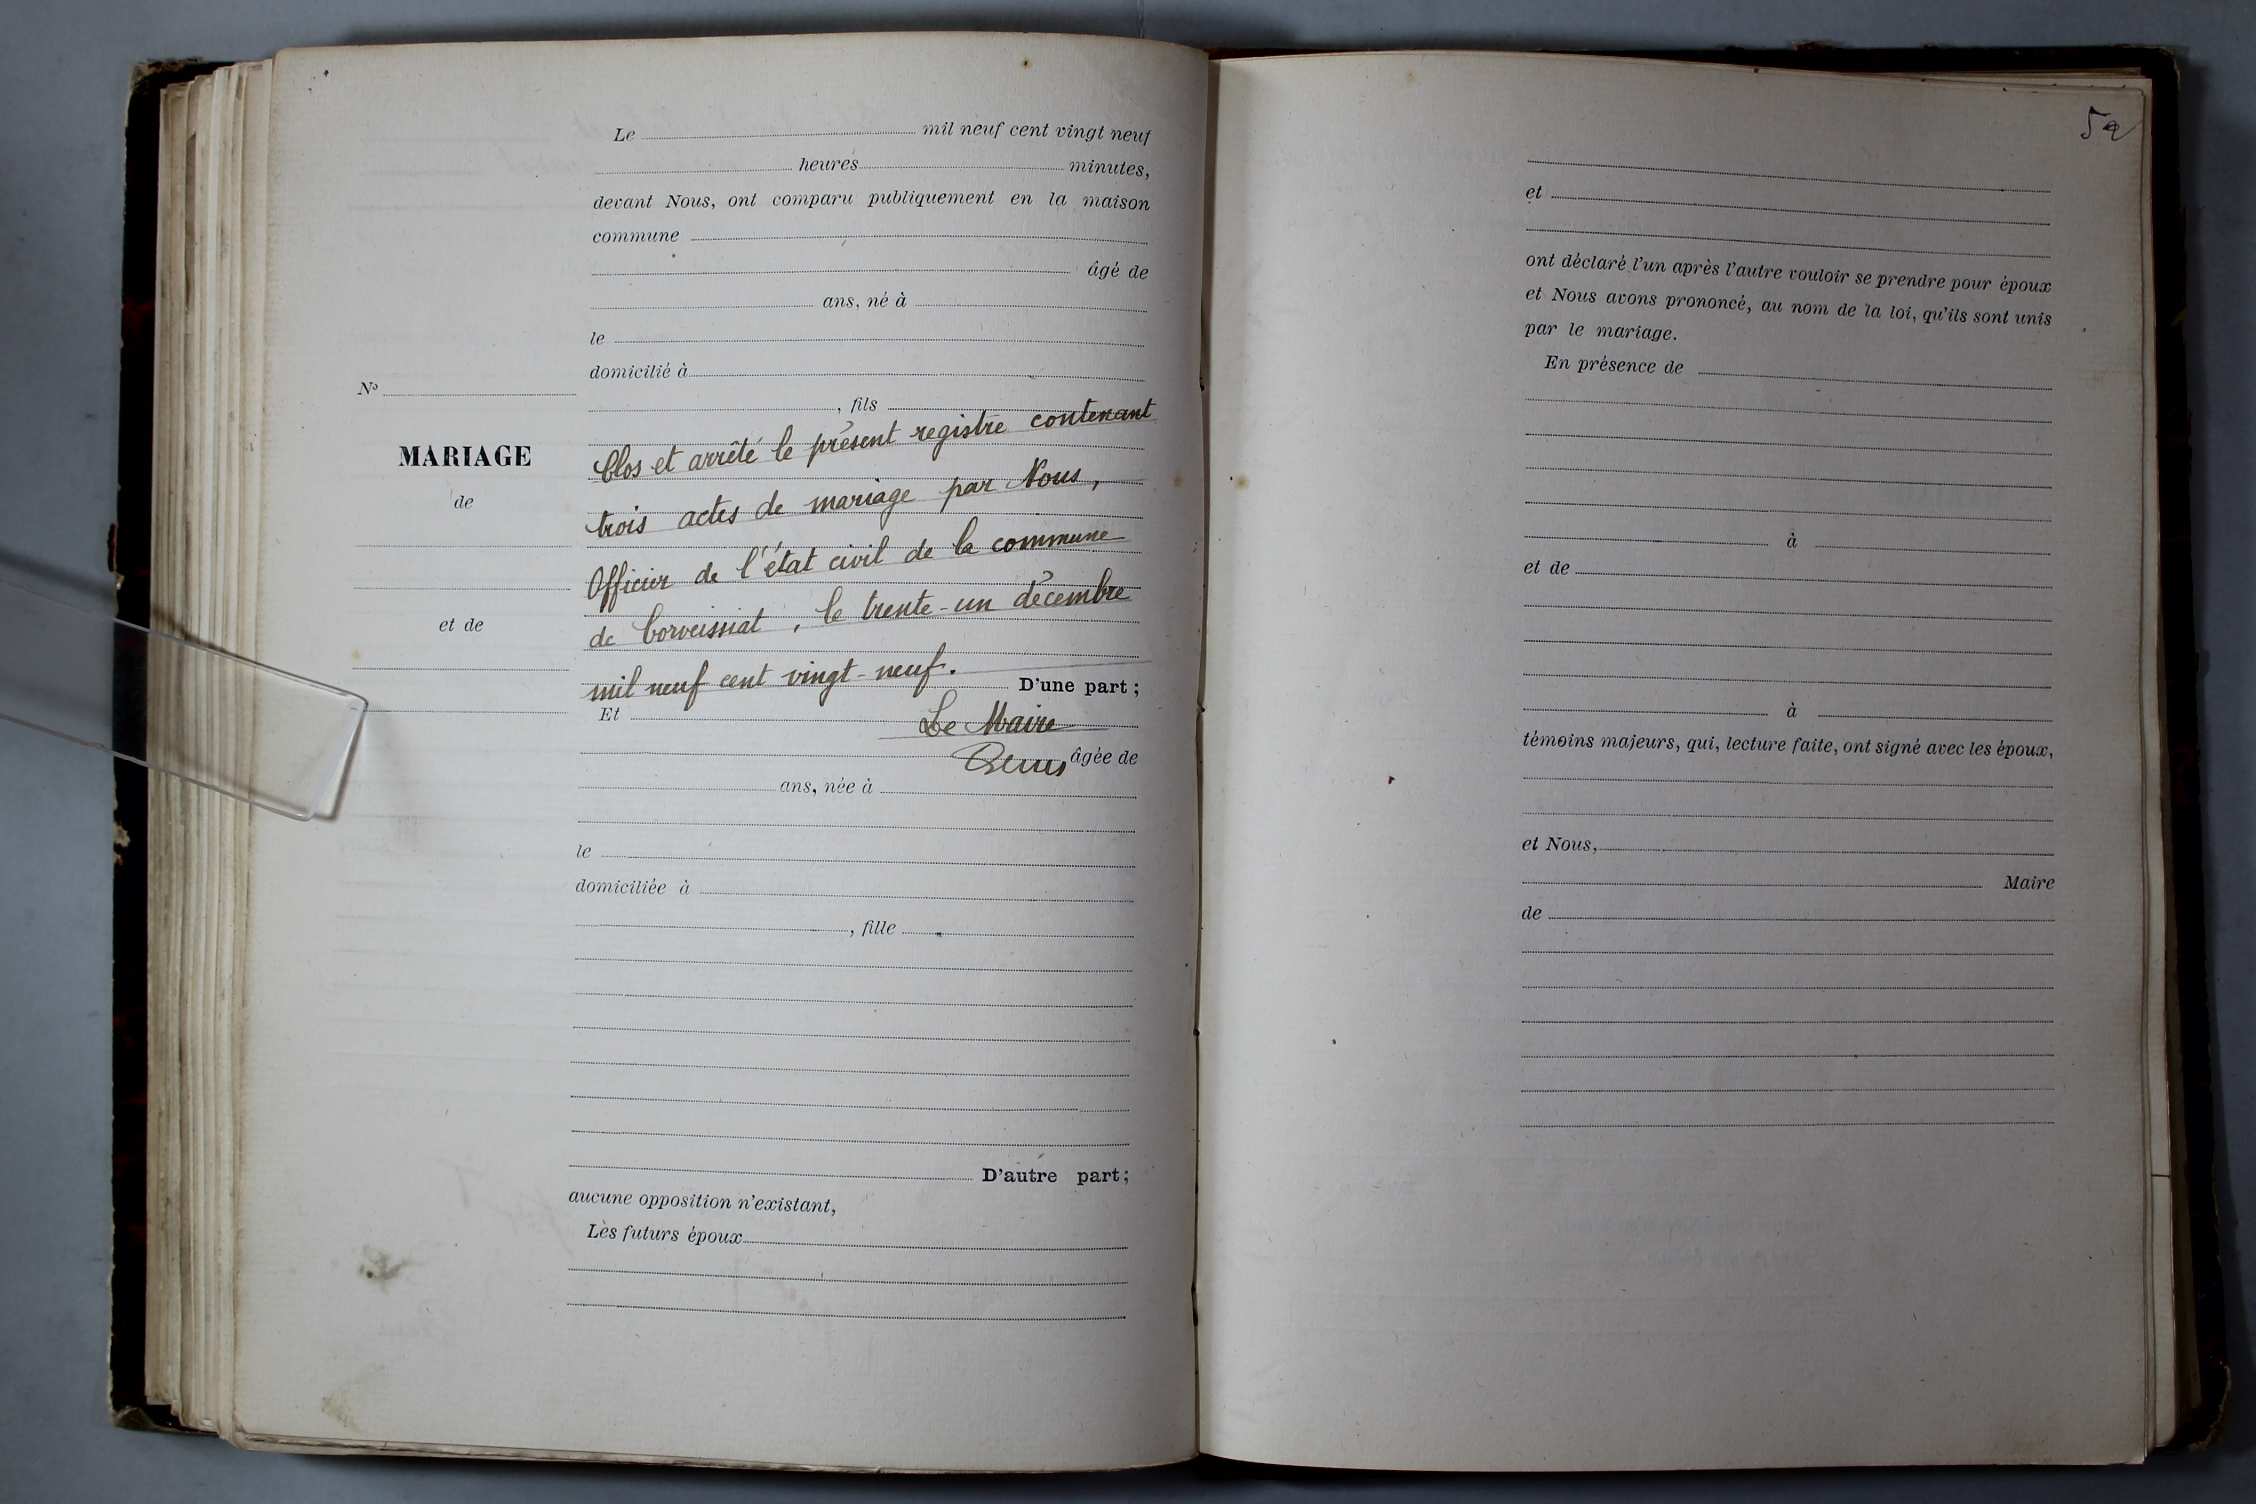 Le mil neuf cent vingt neuf
heures minutes,
devant Nous, ont comparu publiquement en la maison
commune
âgé de
ans, né à
le
domicilié à
, fils
Clos et arrêté le présent registre contenant
trois actes de mariage par Nous,
Officier de l'état civil de la commune
de Corveissiat, le trente-un décembre
mil neuf cent vingt-neuf.
D'une part;
Et Le Maire
âgée de
ans, née à
le
domiciliée à
, fille
D'autre part;
aucune opposition n'existant,
Les futurs époux
No
MARIAGE
de
et de
et
ont déclaré l'un après l'autre vouloir se prendre pour époux
et Nous avons prononcé, au nom de la loi, qu'ils sont unis
par le mariage.
En présence de
à
et de
à
témoins majeurs, qui, lecture faite, ont signé avec les époux,
et Nous,
Maire
de